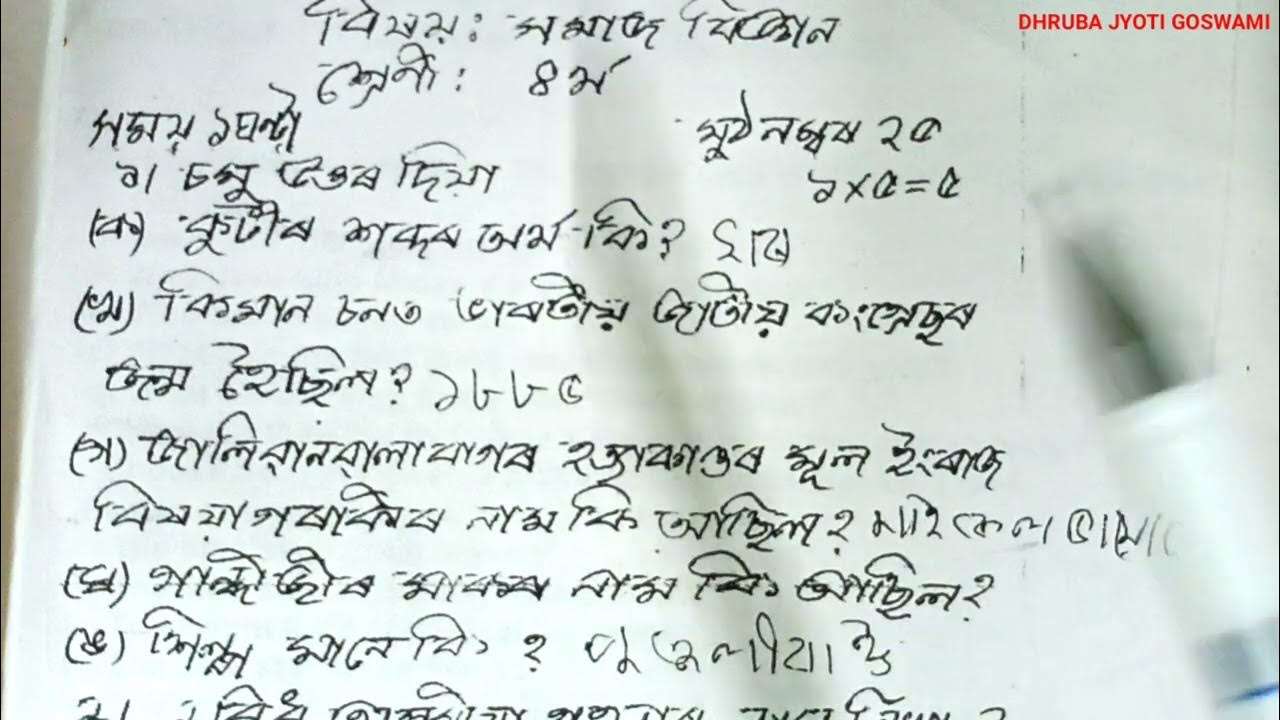 DHRUBA JYOTI GOSWAMI
বিষয়: সমাজ বিজ্ঞান
শ্ৰেণী: ৪ৰ্থ
সময় ১ঘণ্টা মুঠ নম্বৰ ২৫
১। চমু উত্তৰ দিয়া ১×৫=৫
(ক) কুটীৰ শব্দৰ অৰ্থ কি?
(খ) কিমান চনত ভাৰতীয় জাতীয় কংগ্ৰেছৰ
জন্ম হৈছিল? ১৮৮৫
(গ) জালিৱানৱালাবাগৰ হত্যাকাণ্ডৰ মূল ইংৰাজ
বিষয়াগৰাকীৰ নাম কি আছিল? মাইকেল
(ঘ) গান্ধীজীৰ মাকৰ নাম কি আছিল?
(ঙ) শিল্প মানে কি?